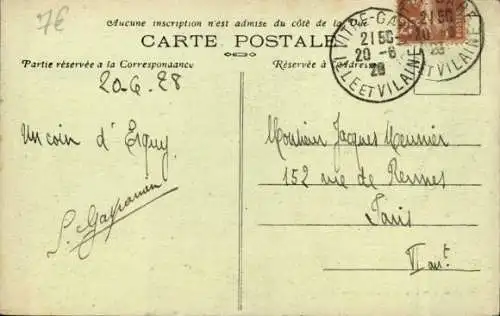 7€
Aucune inscription n'est admise du côté de la
CARTE POSTALE
Partie réservée à la Correspondance
Réservée à
VITRÉ-GARE
21 50
20 -6
28
ILLE ET VILAINE
20-6.28
Un coin d'Erquy.
Monsieur Jacques Meunier
152 rue de Rennes
Paris
VI arrt.